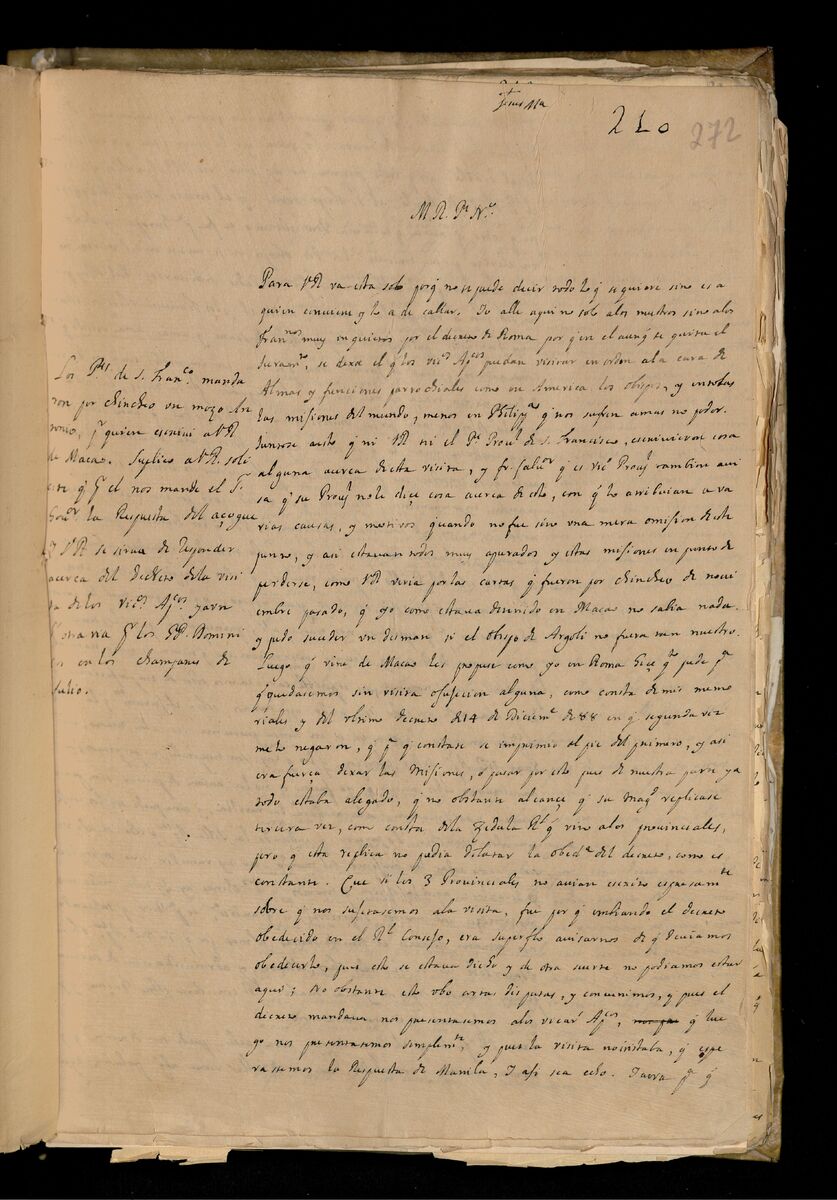 Jesus Ma
210
272
M R. Pe. No.
Para VR va esta solo porq̃ no se puede decir todo lo q̃ se quiere sino es a
quien conviene y lo a de callar. Yo alle aqui no solo a los nuestros sino a los
Frannos muy inquietos por el decreto de Roma por q̃ en el aunq̃ se quita el
Juramto, se dexa el q̃ los vicos Apcos puedan visitar en orden a la cura de
Almas y funciones parrochiales como en America los obispos, y en todas
las misiones del mundo, menos en Philippas q̃ nos sufren a mas no poder.
Juntose a esto q̃ ni VR ni el Pe Proul de S. Francisco, escrivieron cosa
alguna acerca desta visita, y fr. Salvor q̃ es vico Proul tambien avi
sa q̃ su Proul no le dice cosa acerca de esto, con q̃ lo atribuian a va
rias causas, y motivos quando no fue sino una mera omision de este
punto, y asi estavan todos muy apurados y estas misiones en punto de
perderse, como VR veria por las cartas q̃ fueron por chincheo de novi
embre pasado, q̃ yo como estava detenido en Macao no sabia nada.
y pudo suceder un desman si el obispo de Argoli no fuera tan nuestro.
Luego q̃ vine de Macao les propuse como yo en Roma hice qto pude pa
q̃ quedasemos sin visita o sujecion alguna, como consta de mis memo
riales y del ultimo decreto de 14 de Diciembe de 88 en q̃ segunda vez
me lo negaron, q̃ pa q̃ constase se imprimio al pie del primero, y asi
era fuerça dexar las Misiones, o pasar por esto pues de nuestra parte ya
todo estaba alegado, q̃ no obstante alcance q̃ su Magd replicase
tercera vez, com consta de la Zedula Rl q̃ vino a los provinciales,
pero q̃ esta replica no podia dilatar la obeda del decreto, como es
constante. Que si los 3 Provinciales no avian escrito expresamte
sobre q̃ nos sujetasemos a la visita, fue por q̃ embiando el decreto
obedecido en el Rl Consejo, era superfluo avisarnos de q̃ deviamos
obedecerlo, pues esto se estava dicho y de otra suerte no podiamos estar
aqui; No obstante esto ubo artas disputas, y convenimos, y pues el
decreto mandava nos presentasemos a los vicars Apcos, q̃ lue
go nos presentasemos simplemte, y pues la visita no instaba, q̃ espe
rasemos la Respuesta de Manila, Y asi sea echo. Y aora pa q̃
Los Pes de S. Franco. manda
ron por chincheo un mozo An
tonio, pr quien escrivi a VR
de Macao. Suplico a VR. soli
cite q̃ pr el nos mande el Sr
Gour la Respuesta del açogue
y VR se sirva de Responder
acerca del decreto de la visi
ta de los vicos Apcos y a un
pr los PP. Domini
cos en los champanes de
Julio.